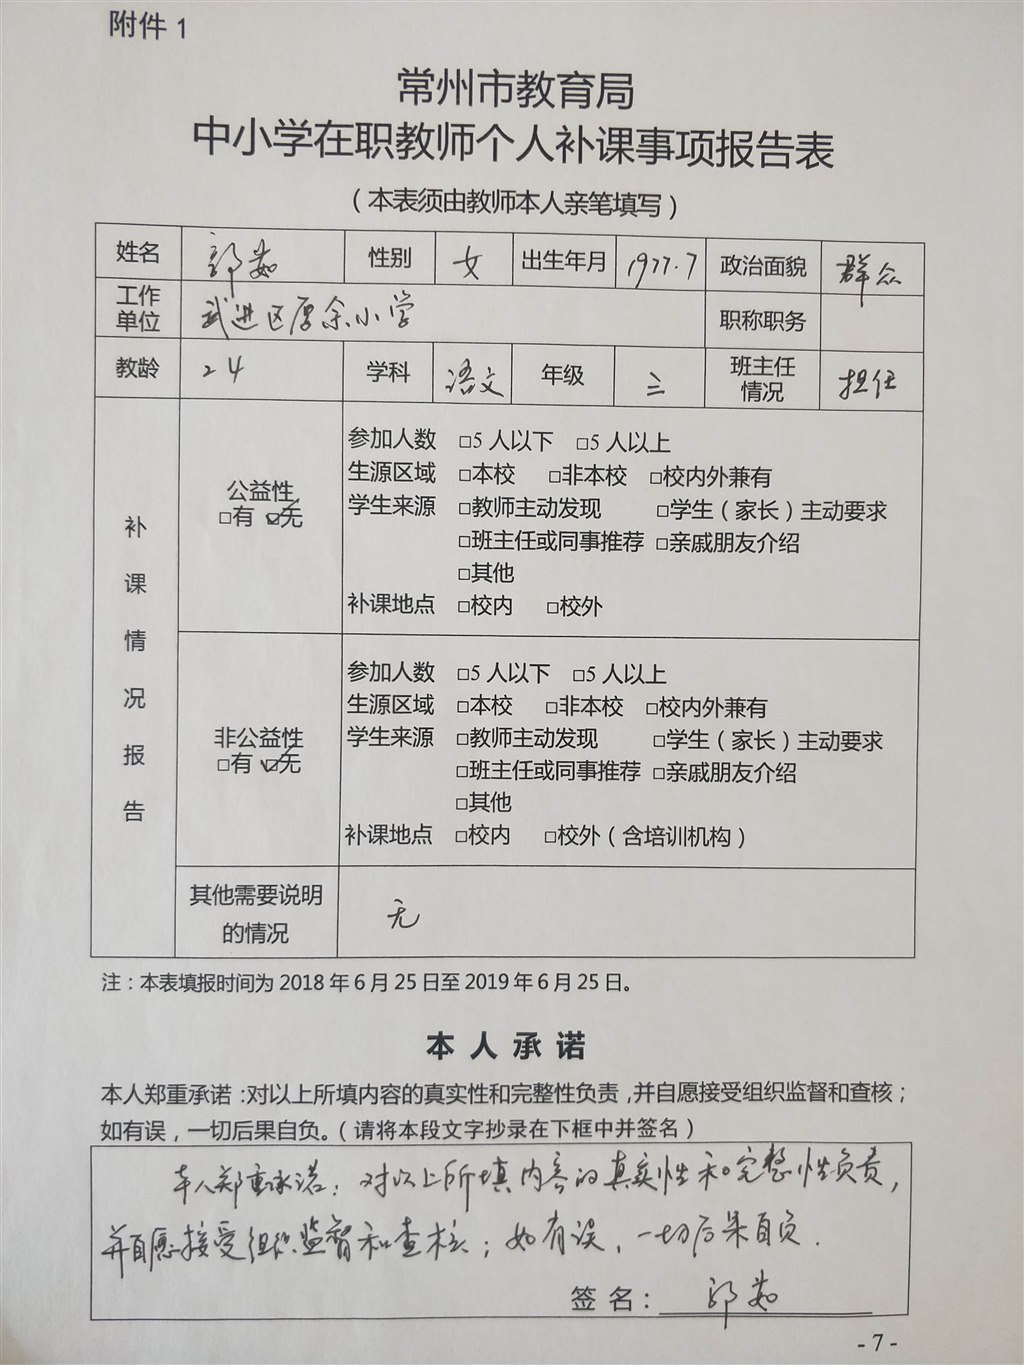 附件 1
常州市教育局
中小学在职教师个人补课事项报告表
（本表须由教师本人亲笔填写）
姓名 郭茹 性别 女 出生年月 1977.7 政治面貌 群众
工作单位 武进区厚余小学 职称职务
教龄 24 学科 语文 年级 三 班主任情况 担任
补课情况报告
公益性
□有 ☑无
参加人数 □5 人以下 □5 人以上
生源区域 □本校 □非本校 □校内外兼有
学生来源 □教师主动发现 □学生（家长）主动要求
□班主任或同事推荐 □亲戚朋友介绍
□其他
补课地点 □校内 □校外
非公益性
□有 ☑无
参加人数 □5 人以下 □5 人以上
生源区域 □本校 □非本校 □校内外兼有
学生来源 □教师主动发现 □学生（家长）主动要求
□班主任或同事推荐 □亲戚朋友介绍
□其他
补课地点 □校内 □校外（含培训机构）
其他需要说明
的情况
无
注：本表填报时间为 2018 年 6 月 25 日至 2019 年 6 月 25 日。
本 人 承 诺
本人郑重承诺：对以上所填内容的真实性和完整性负责，并自愿接受组织监督和查核；
如有误，一切后果自负。（请将本段文字抄录在下框中并签名）
本人郑重承诺：对以上所填内容的真实性和完整性负责，
并自愿接受组织监督和查核；如有误，一切后果自负.
签 名： 郭茹
- 7 -